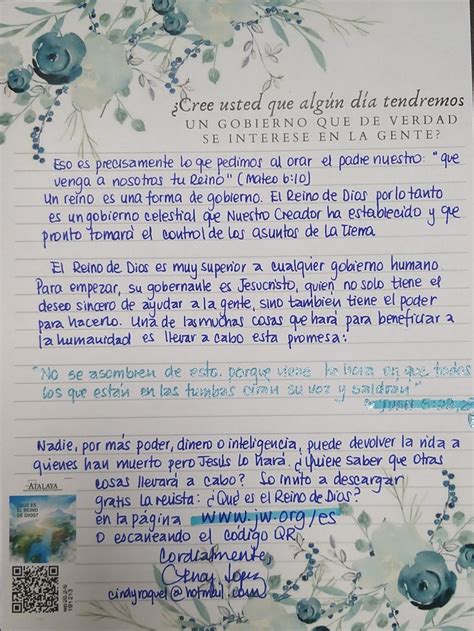 ¿Cree usted que algún día tendremos
UN GOBIERNO QUE DE VERDAD
SE INTERESE EN LA GENTE?
Eso es precisamente lo que pedimos al orar el padre nuestro: "que
venga a nosotros tu Reino" (Mateo 6:10)
Un reino es una forma de gobierno. El Reino de Dios por lo tanto
es un gobierno celestial que Nuestro Creador ha establecido y que
pronto tomará el control de los asuntos de la Tierra.
El Reino de Dios es muy superior a cualquier gobierno humano.
Para empezar, su gobernante es Jesucristo, quien no solo tiene el
deseo sincero de ayudar a la gente, sino tambien tiene el poder
para hacerlo. Una de las muchas cosas que hará para beneficiar a
la humanidad es llevar a cabo esta promesa:
"No se asombren de esto, porque viene la hora en que todos
los que están en las tumbas oirán su voz y saldrán"
Juan
Nadie, por más poder, dinero o inteligencia, puede devolver la vida a
quienes han muerto pero Jesús lo hará. ¿Quiere saber que otras
cosas llevará a cabo? Lo invito a descargar
gratis la revista: ¿Qué es el Reino de Dios?
en la página www.jw.org/es
O escaneando el código QR.
Cordialmente,
cindyroquel@hotmail.com
ATALAYA
¿QUÉ ES
EL REINO
DE DIOS?